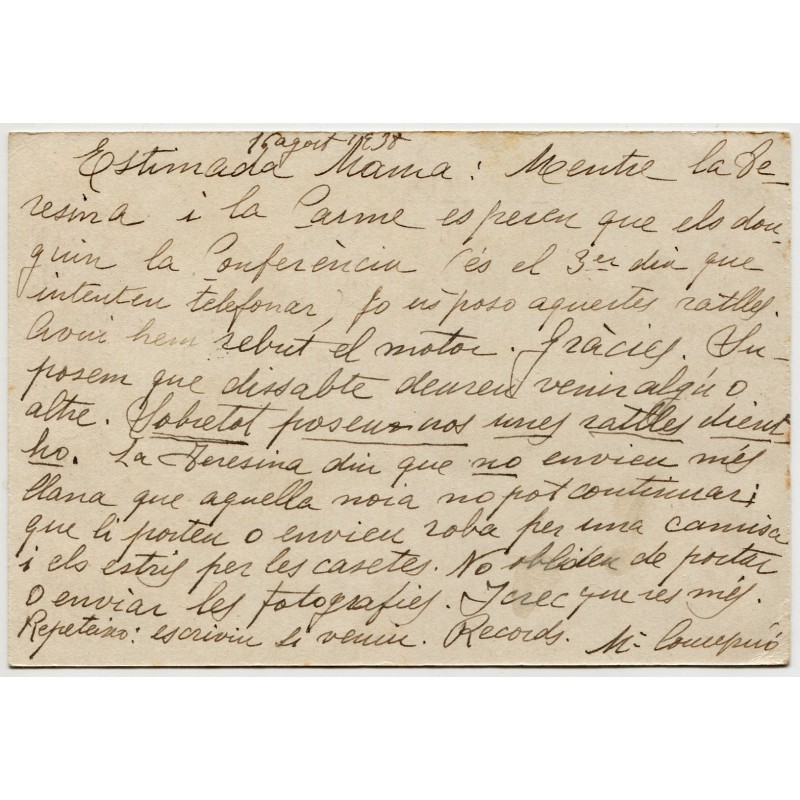 16 agost 1938
Estimada Mama: Mentre la Te-
resina i la Carme esperen que els don-
guin la Conferència (és el 3er dia que
intenten telefonar, jo us poso aquestes ratlles.
Avui hem rebut el motor. Gràcies. Su-
posem que dissabte deureu venir algú o
altre. Sobretot poseu-nos unes ratlles dient-
ho. La Teresina diu que no envieu més
llana que aquella noia no pot continuar i
que li porteu o envieu roba per una camisa
i els estris per les casetes. No oblideu de portar
o enviar les fotografies. I crec que res més.
Repeteixo: escriviu si veniu. Records. Mª Concepció